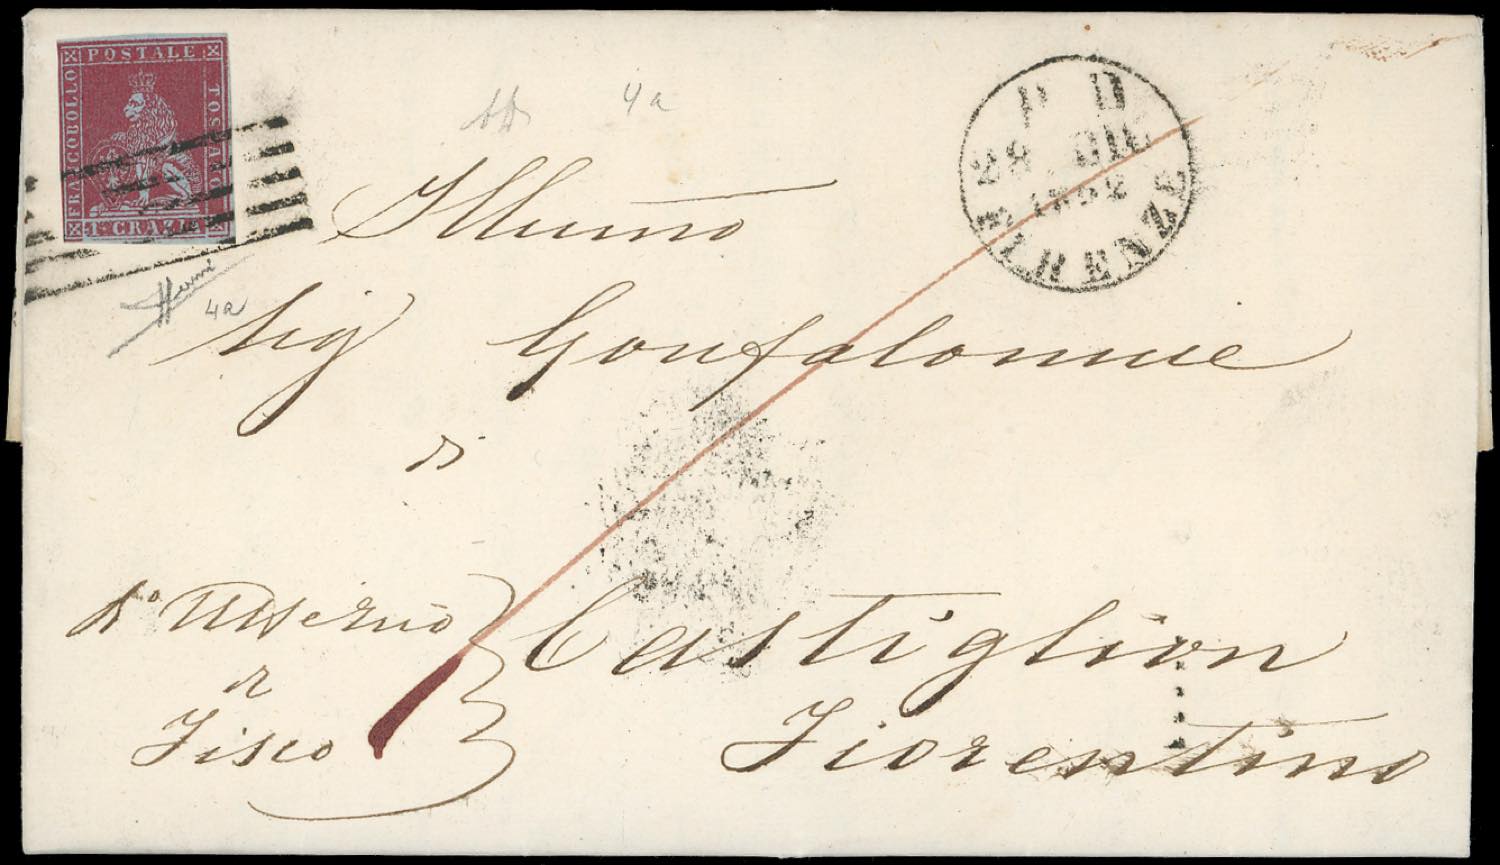 FRANCOBOLLO
POSTALE
TOSCANO
1 CRAZIA
4a
P D
28 DIC
1852
FIRENZE
Illmo
4a
Sig Gonfaloniere
di
Castiglion
Fiorentino
di
Fisco